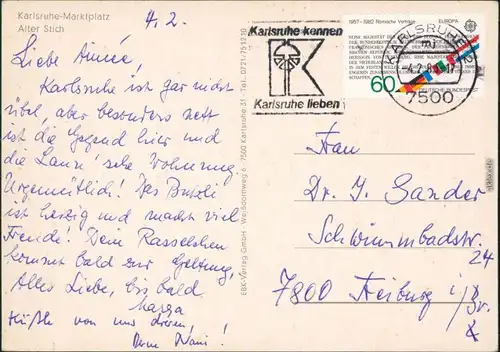 Karlsruhe-Marktplatz
Alter Stich
4.2.
Liebe Aimée,
Karlsruhe ist gar nicht
übel, aber besonders nett
ist die Gegend hier und
die Laun'sche Wohnung.
Urgemütlich! Das Butzli
ist herzig und macht viel
Freude! Dein Rasselchen
kommt bald zur Geltung,
Alles Liebe, bis bald
Grüße von uns dreien,
Deine
EBK-Verlag GmH · Weißdornweg 6 · 7500 Karlsruhe 31 · Tel.: 0721/751930
Karlsruhe kennen
Karlsruhe lieben
1957-1982 Römische Verträge
EUROPA
60
DEUTSCHE BUNDESPOST
KARLSRUHE
7500
Frau
Dr. J. Sander
Schwimmbadstr.
24
7800 Freiburg i/Br.